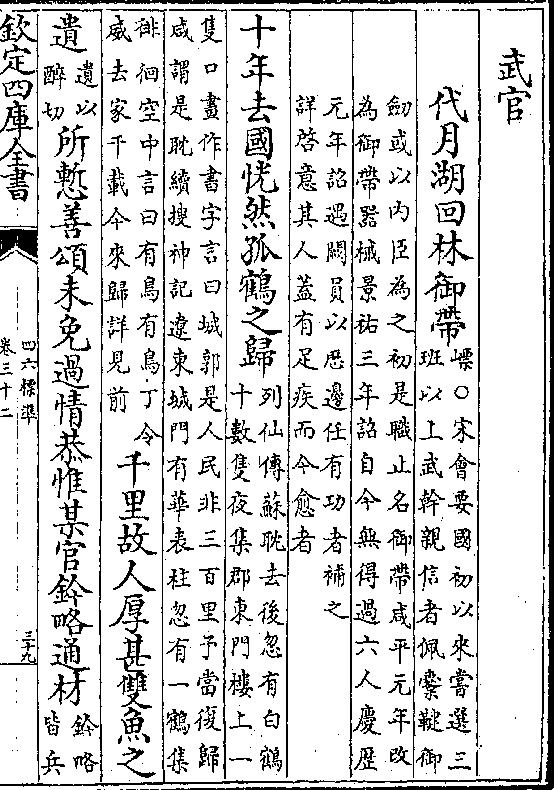 武官
代月湖回林御帶
○宋會要國初以來嘗選三
班以上武幹親信者佩櫜鞬御
劒或以内臣為之初是職止名御帶咸平元年改
為御帶器械景祐三年詔自今無得過六人慶歴
元年詔遇闕員以歴邊任有功者補之
詳啓意其人蓋有足疾而今愈者
十年去國恍然孤鶴之歸
列仙傳蘇耽去後忽有白鶴
十數隻夜集郡東門樓上一
隻口畫作書字言曰城郭是人民非三百里予當復歸
咸謂是耽續搜神記遼東城門有華表柱忽有一鶴集
徘徊空中言曰有鳥有鳥丁令
威去家千載今來歸詳見前
千里故人厚甚雙魚之
遺
遺以
醉切
所慙善頌未免過情恭惟某官鈐略通材
鈐略
皆兵
欽定四庫全書
四六標準
卷三十二
三十九